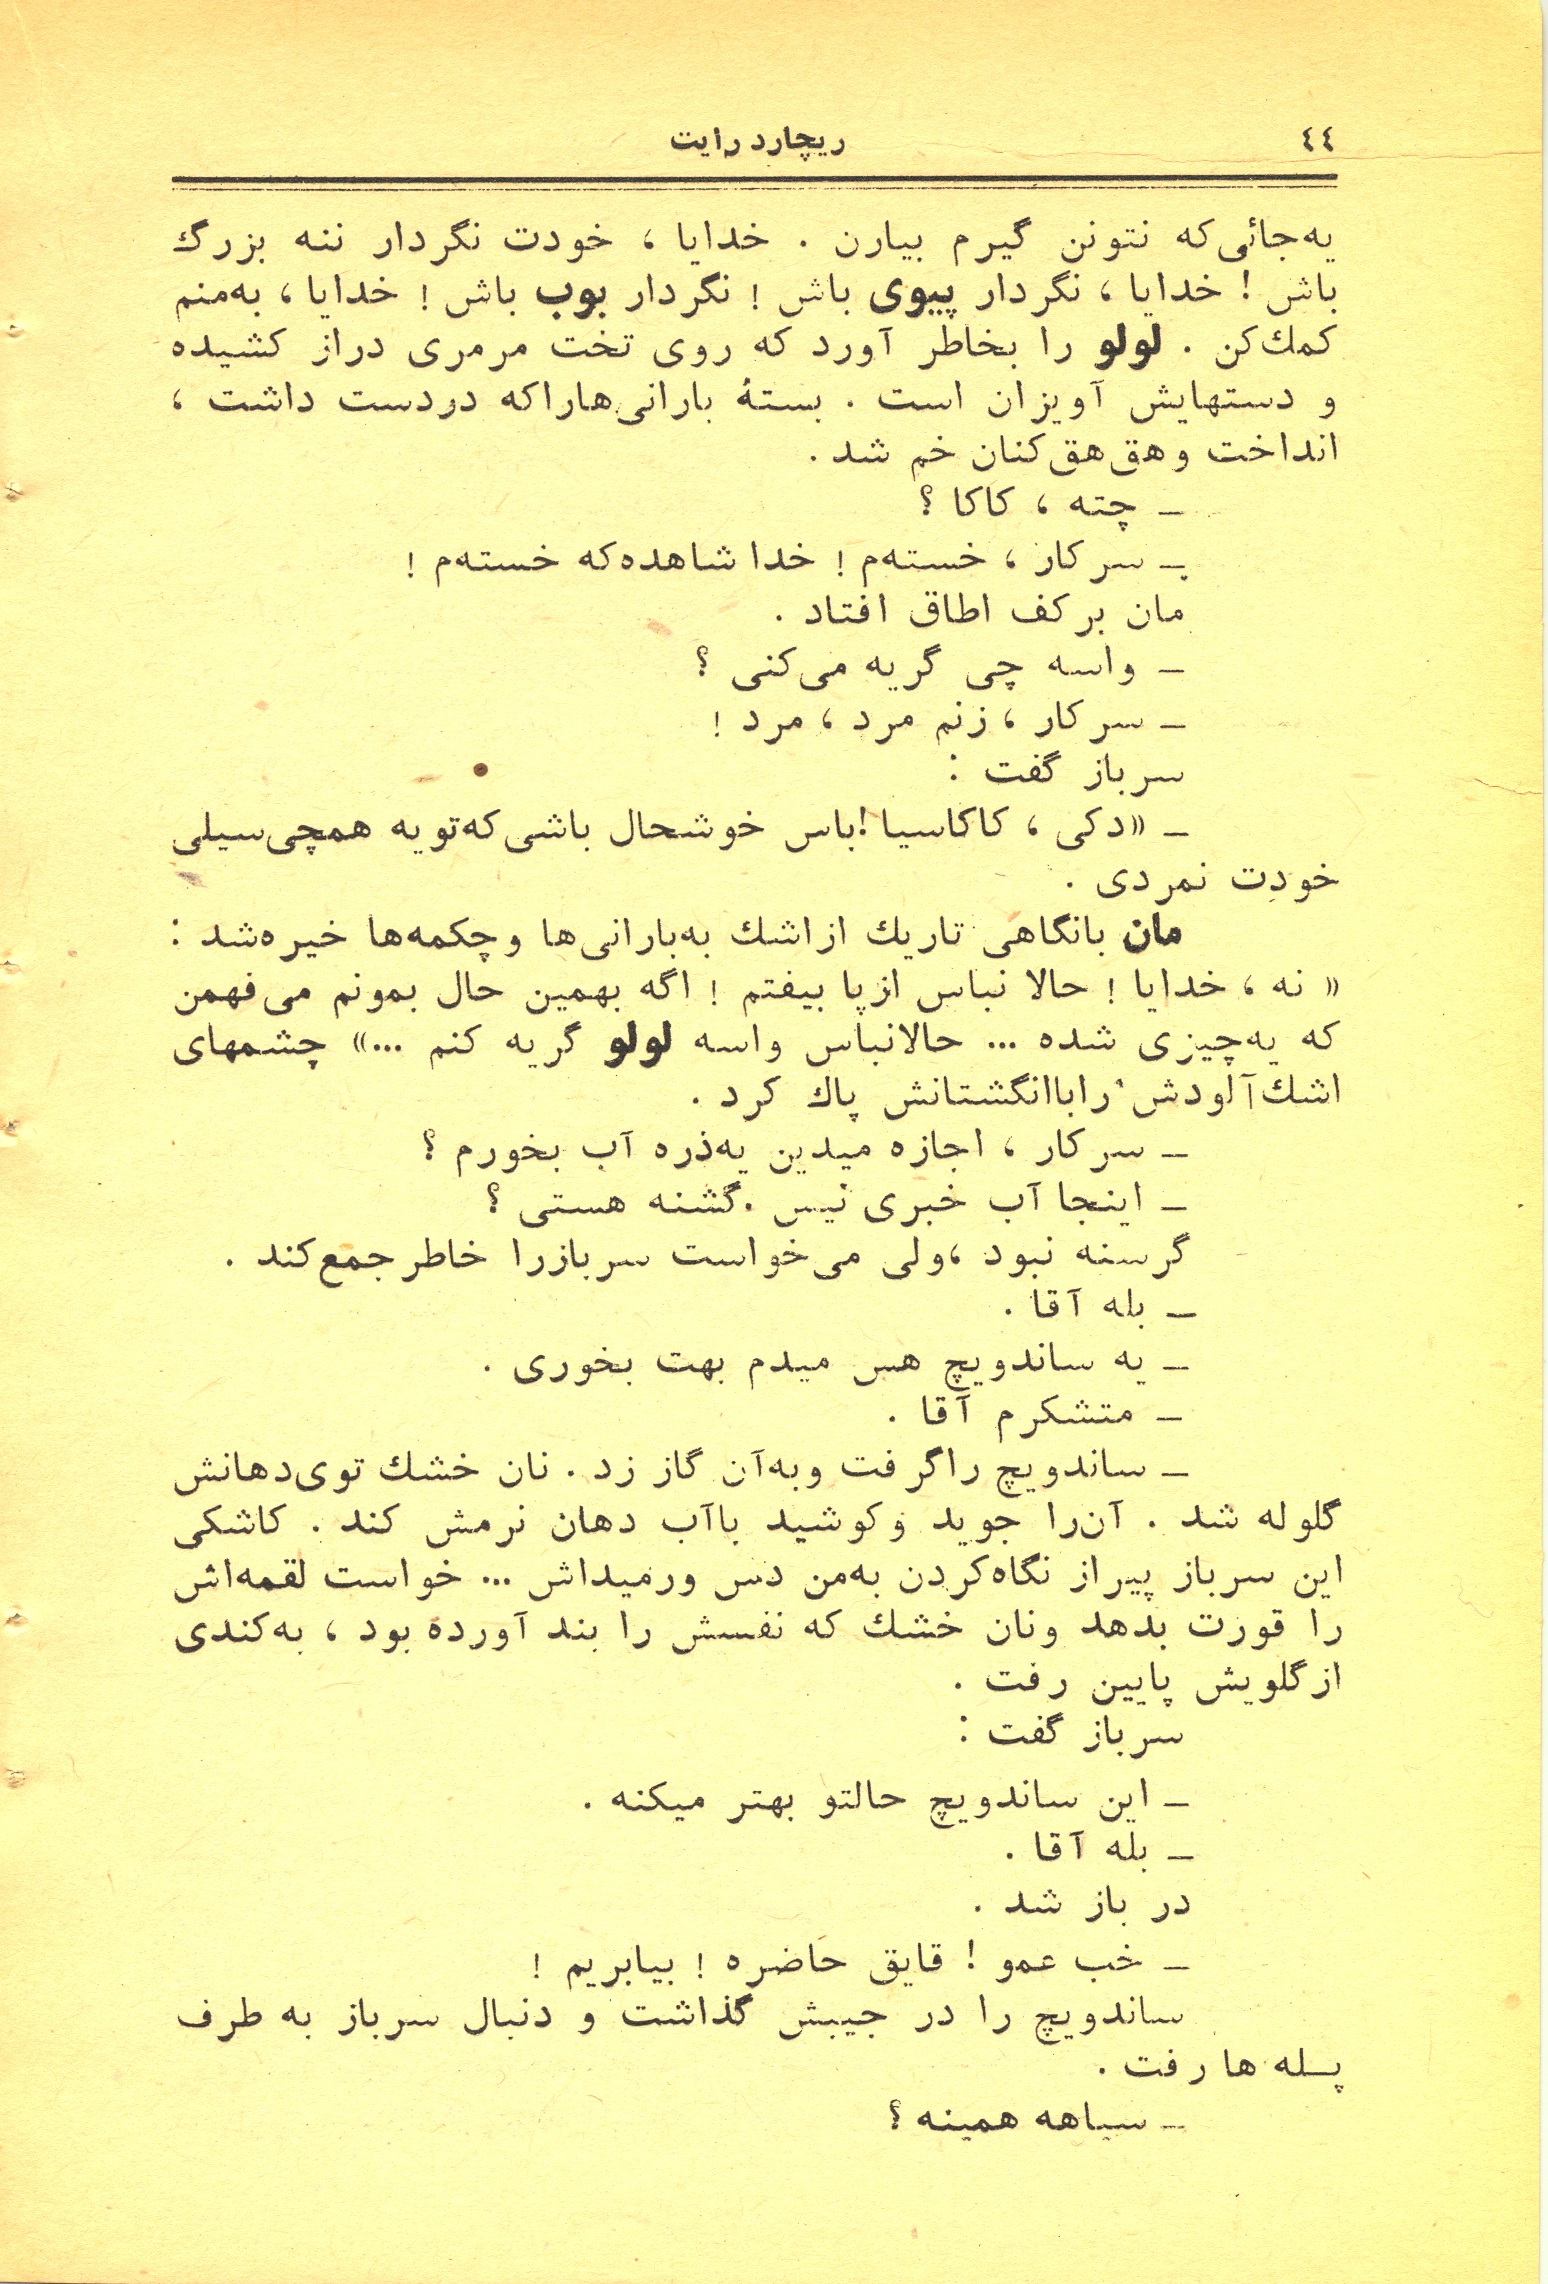 ٤٤
ریچارد رایت
یه‌جائی‌که نتونن گیرم بیارن . خدایا ، خودت نگردار ننه بزرگ
باش ! خدایا ، نگردار پیوی باش ! نگردار بوب باش ! خدایا ، به‌منم
کمك‌کن . لولو را بخاطر آورد که روی تخت مرمری دراز کشیده
و دستهایش آویزان است . بستهٔ بارانی‌هاراکه دردست داشت ،
انداخت و هق‌هق‌کنان خم شد .
ــ چته ، کاکا ؟
ــ سرکار ، خسته‌م ! خدا شاهده‌که خسته‌م !
مان برکف اطاق افتاد .
ــ واسه چی گریه می‌کنی ؟
ــ سرکار ، زنم مرد ، مرد !
سرباز گفت :
ــ «دکی ، کاکاسیا !باس خوشحال باشی‌که‌تویه همچی‌سیلی
خودت نمردی .
مان بانگاهی تاریك ازاشك به‌بارانی‌ها وچکمه‌ها خیره‌شد :
« نه ، خدایا ! حالا نباس ازپا بیفتم ! اگه بهمین حال بمونم می‌فهمن
که یه‌چیزی شده ... حالانباس واسه لولو گریه کنم ...» چشمهای
اشك‌آلودش راباانگشتانش پاك کرد .
ــ سرکار ، اجازه میدین یه‌ذره آب بخورم ؟
ــ اینجا آب خبری نیس .گشنه هستی ؟
گرسنه نبود ،ولی می‌خواست سربازرا خاطرجمع‌کند .
ــ بله آقا .
ــ یه ساندویچ هس میدم بهت بخوری .
ــ متشکرم آقا .
ــ ساندویچ راگرفت وبه‌آن گاز زد . نان خشك توی‌دهانش
گلوله شد . آن‌را جوید وکوشید باآب دهان نرمش کند . کاشکی
این سرباز پیراز نگاه‌کردن به‌من دس ورمیداش ... خواست لقمه‌اش
را قورت بدهد ونان خشك که نفسش را بند آورده بود ، به‌کندی
ازگلویش پایین رفت .
سرباز گفت :
ــ این ساندویچ حالتو بهتر میکنه .
ــ بله آقا .
در باز شد .
ــ خب عمو ! قایق حاضره ! بیابریم !
ساندویچ را در جیبش گذاشت و دنبال سرباز به طرف
پله ها رفت .
ــ سیاهه همینه ؟